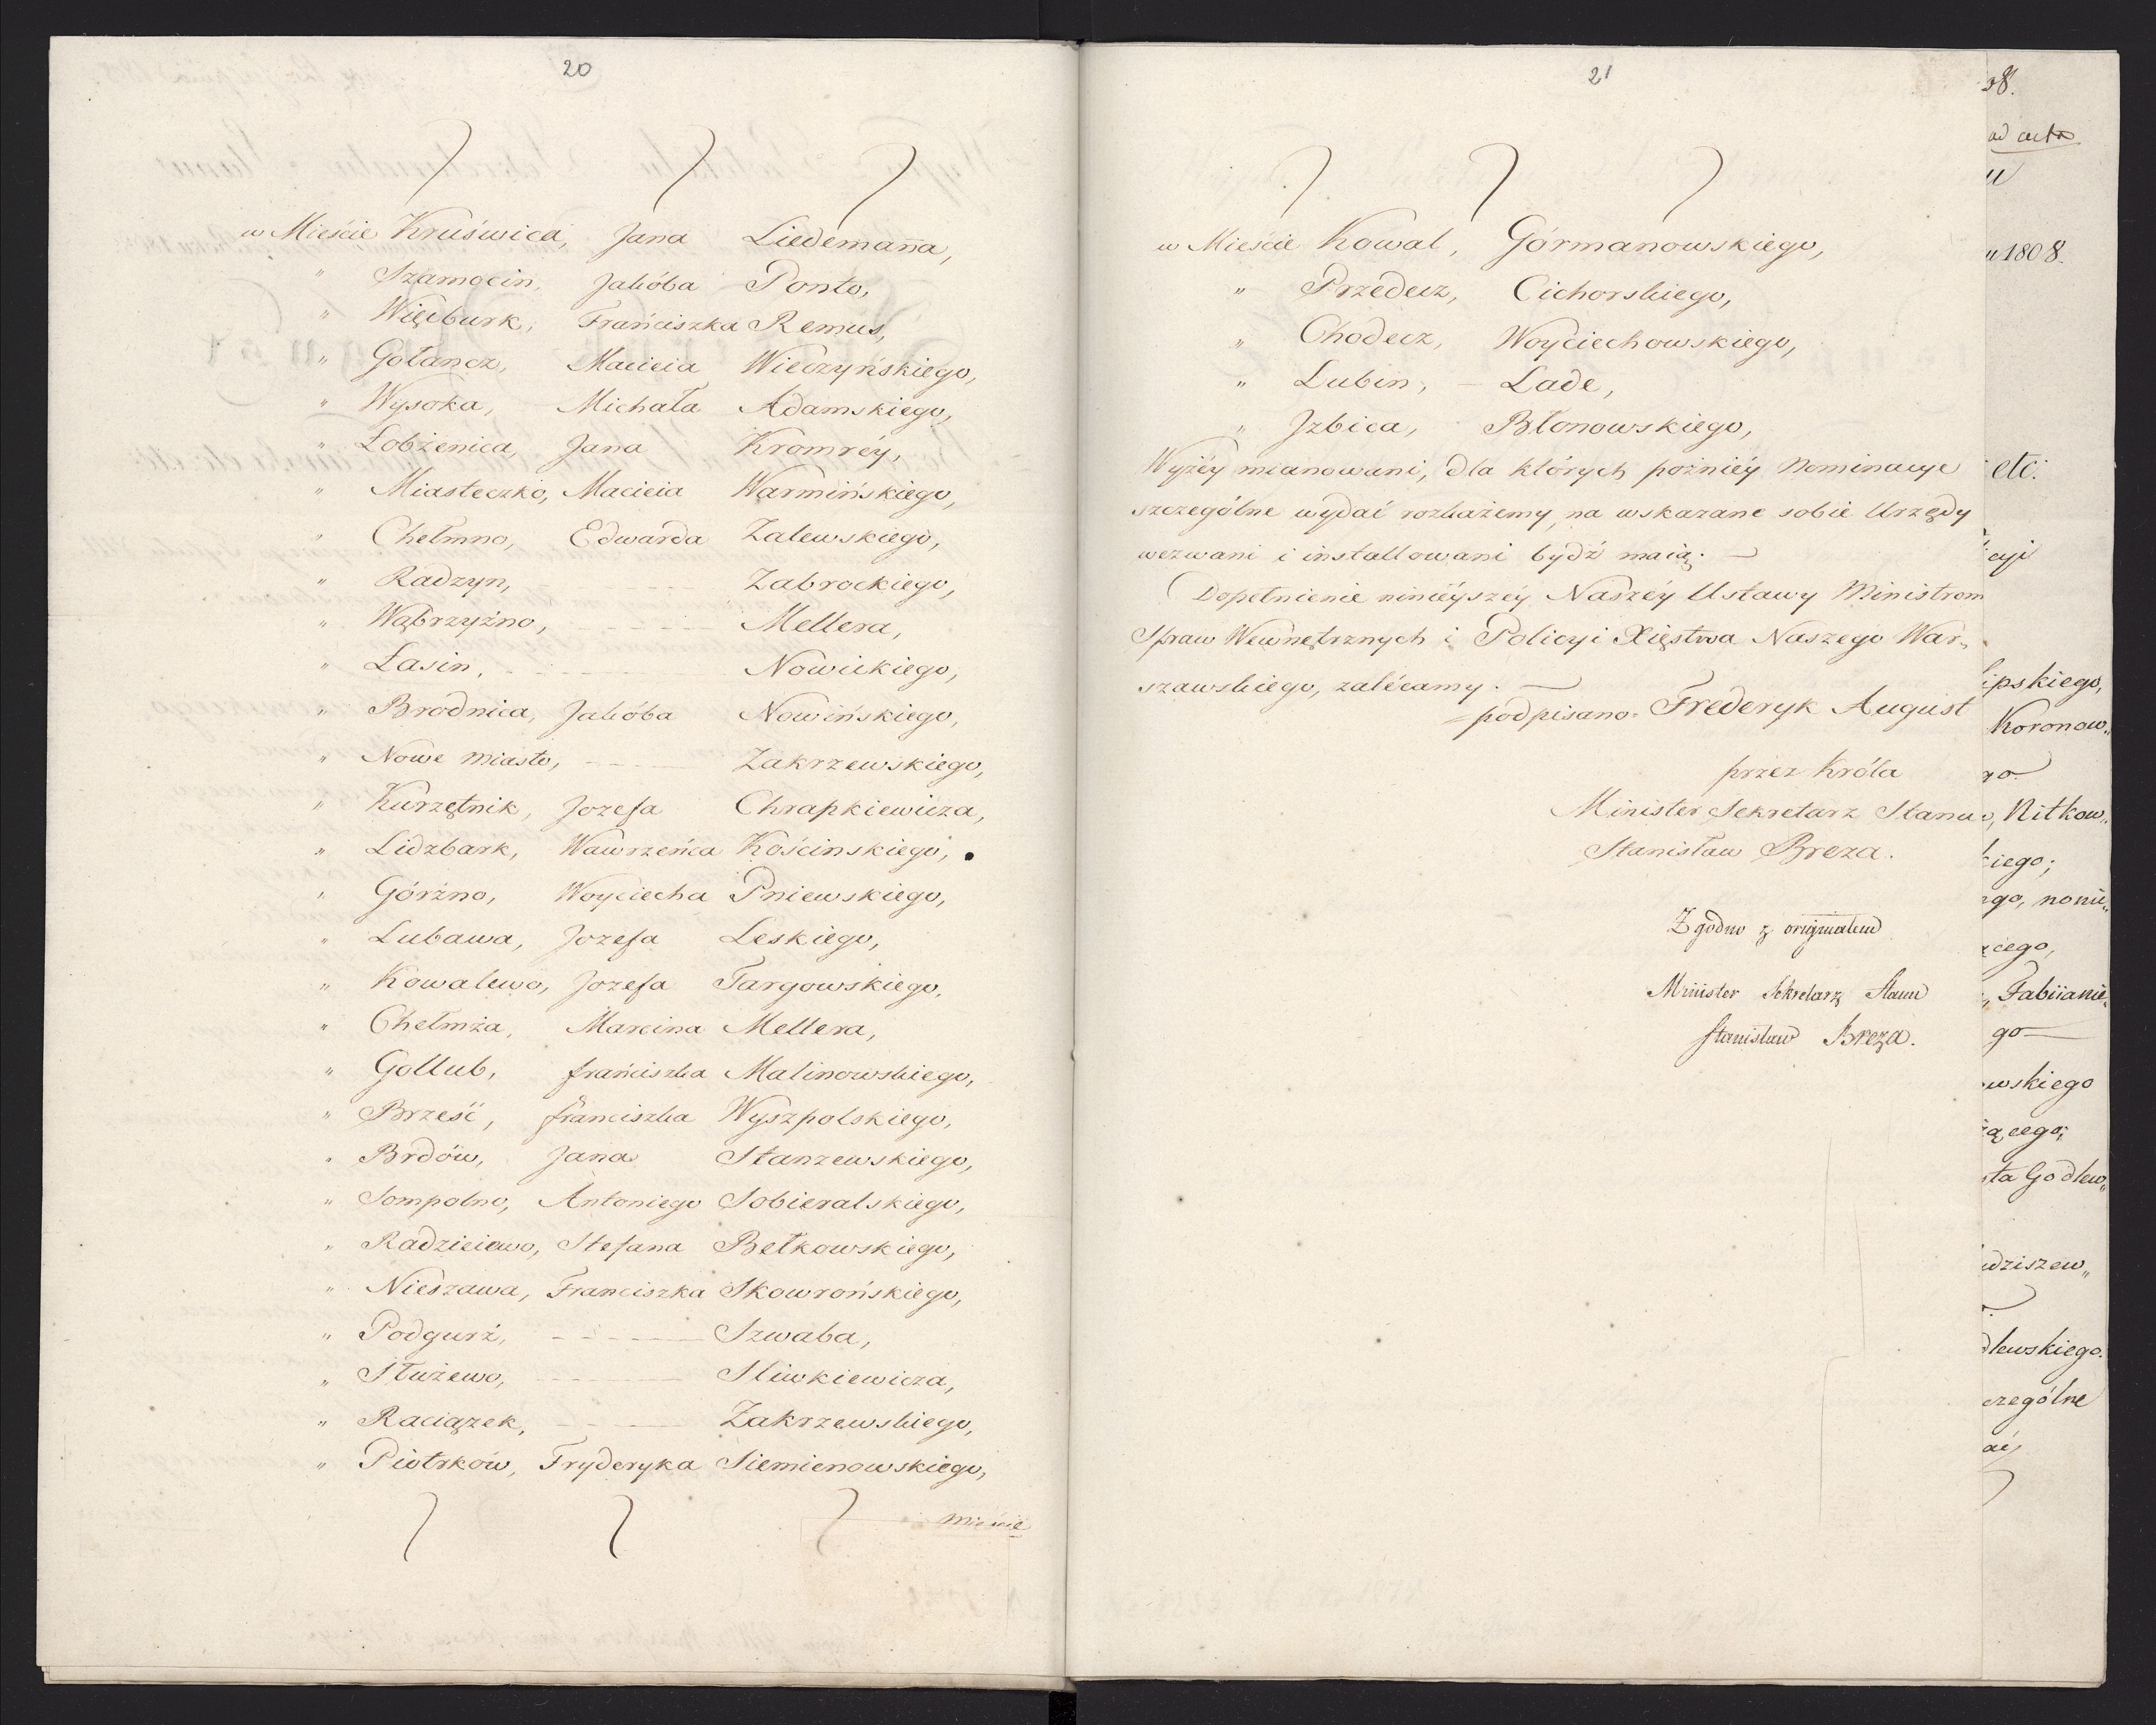 20
w Mieście Kruświca, Jana Liedemaña,
" Szamocin, Jakóba Ponto,
" Więcburk, Frańciszka Remus,
" Gołancz, Macieia Wieczyńskiego,
" Wysoka, Michała Adamskiego,
" Łobżenica, Jana Kromréy,
" Miasteczko, Macieia Warmińskiego,
" Chełmno, Edwarda Zalewskiego,
" Radzyn, - - - Zabrockiego,
" Wąbrzyźno, - - - Mellera,
" Łasin, - - - Nowickiego,
" Brodnica, Jakóba Nowińskiego,
" Nowe miasto, - - - Zakrzewskiego,
" Kurzętnik, Jozefa Chrapkiewicza,
" Lidzbark, Wawrzeńca Kościnskiego,
" Górżno, Woyciecha Pniewskiego,
" Lubawa, Jozefa Leskiego,
" Kowalewo, Jozefa Targowskiego,
" Chełmża, Marcina Mellera,
" Gollub, frańciszka Malinowskiego,
" Brześć, franciszka Wyszpolskiego,
" Brdów, Jana Stanzewskiego,
" Sompolno, Antoniego Sobieralskiego,
" Radzieiewo, Stefana Bełkowskiego,
" Nieszawa, Franciszka Skowrońskiego,
" Podgurż, - - - Szwaba,
" Służewo, - - - Sliwkiewicza,
" Raciązek, - - - Zakrzewskiego,
" Piotrków, Fryderyka Siemienowskiego,
Mieście
21
w Mieście Kowal, Górmanowskiego,
" Przedecz, Cichorskiego,
" Chodecz, Woyciechowskiego,
" Lubin, - Lade,
" Jzbica, Błonowskiego,
Wyżéy mianowani, dla których pożniéy Nominacye
szczególne wydać rozkażemy, na wskazane sobie Urzędy
wezwani i installowani bydź maią. —
Dopełnienie ninieyszéy Naszéy Ustawy Ministrom
Spraw Wewnętrznych i Policyi Xięstwa Naszego War„
szawskiego, zalécamy. —
podpisano: Frederyk August
przez Króla
Minister Sekretarz Stanu
Stanisław Breza.
Zgodno z oryginałem
Minister Sekretarz Stanu
Stanisław Breza.
08.
ad acta
u
u 1808.
etc:
cyi
lipskiego,
Koronow„
go
, Nitkow„
kiego;
ego, nomi„
cego,
„ Fabiianie„
go —
wskiego
ącego;
sta Godlew„
udziszew„
dlewskiego.
czególne
ać,